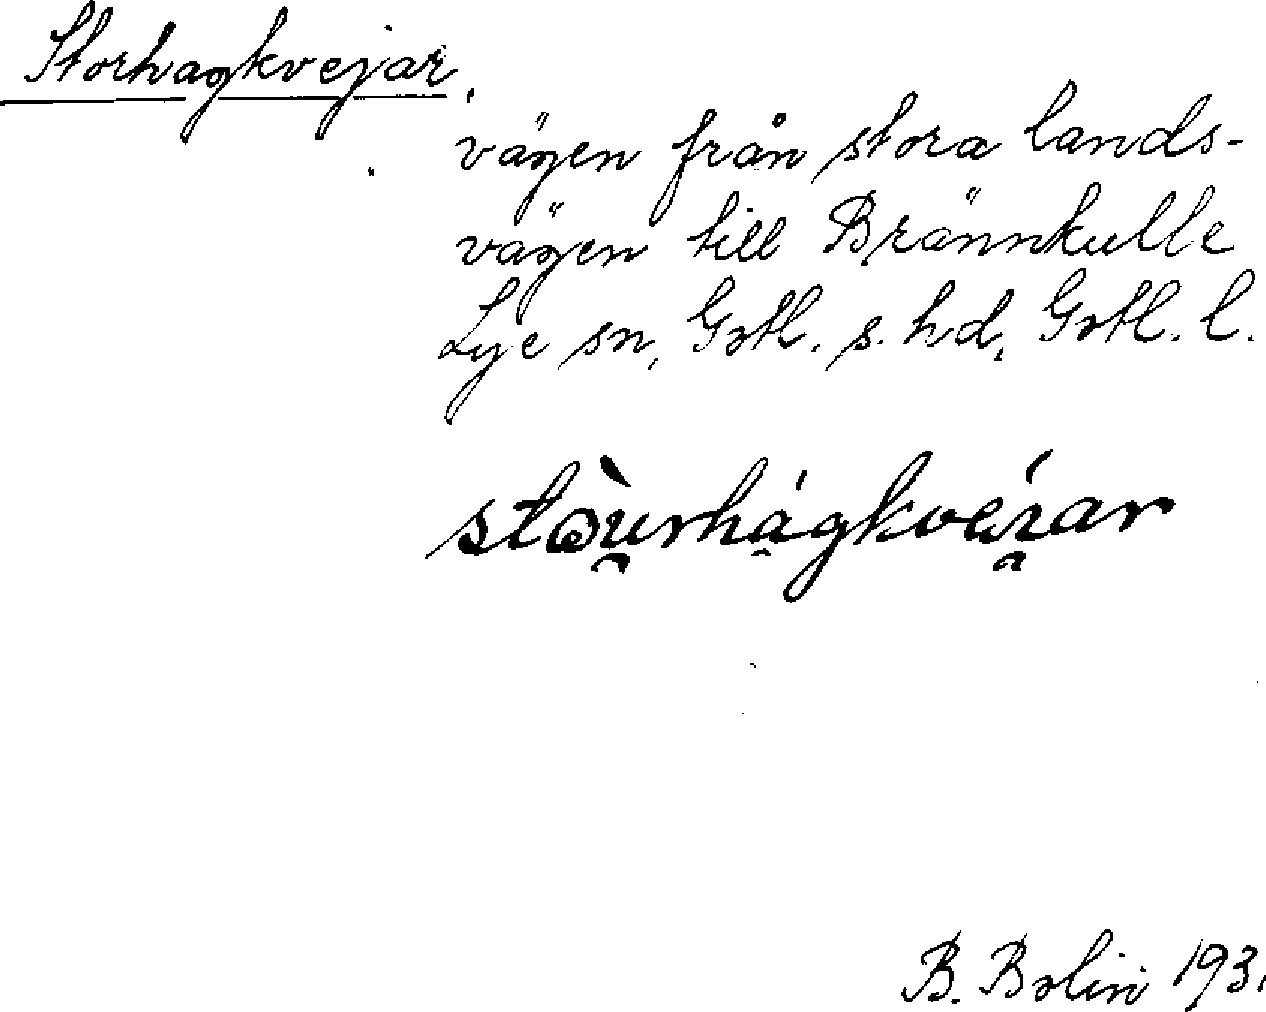 Storhagkvejar.
vägen från stora lands-
vägen till Brännkulle
Lye sn, Gotl. s. hd, Gotl. l.
B. Bolin 193